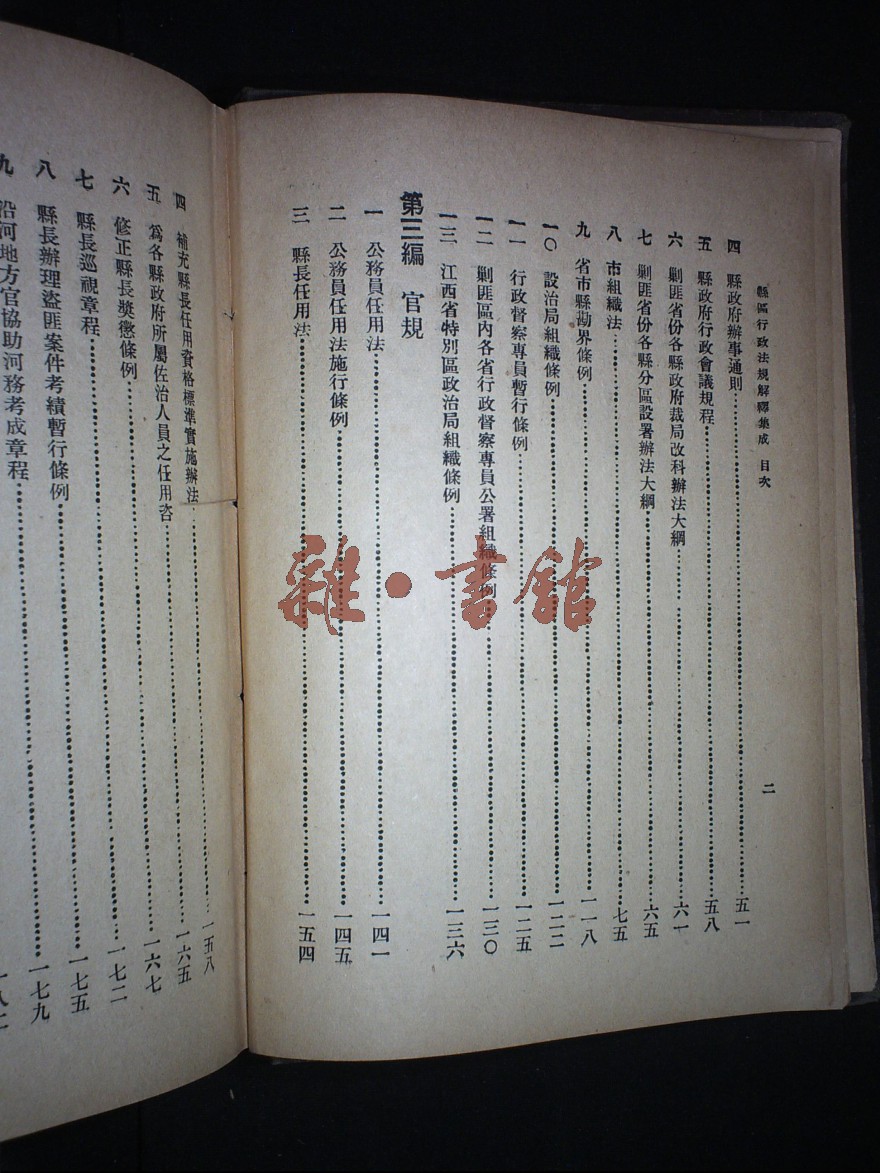 縣區行政法規解釋集成　目次
二
四　縣政府辦事通則 五一
五　縣政府行政會議規程 五八
六　剿匪省份各縣政府裁局改科辦法大綱 六一
七　剿匪省份各縣分區設署辦法大綱 六五
八　市組織法 七五
九　省市縣勘界條例 一一八
一〇　設治局組織條例 一二二
一一　行政督察專員暫行條例 一二五
一二　剿匪區內各省行政督察專員公署組織條例 一三〇
一三　江西省特別區政治局組織條例 一三六
第三編　官規
一　公務員任用法 一四一
二　公務員任用法施行條例 一四五
三　縣長任用法 一五四
四　補充縣長任用資格標準實施辦法 一五八
五　為各縣政府所屬佐治人員之任用咨 一六五
六　修正縣長獎懲條例 一六七
七　縣長巡視章程 一七二
八　縣長辦理盜匪案件考績暫行條例 一七五
九　沿河地方官協助河務考成章程 一七九
雜·書館